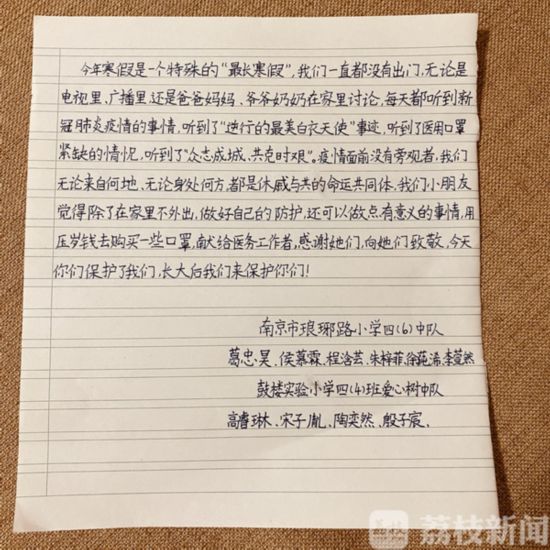 今年寒假是一个特殊的“最长寒假”，我们一直都没有出门，无论是
电视里、广播里、还是爸爸妈妈、爷爷奶奶在家里讨论，每天都听到新
冠肺炎疫情的事情，听到了“逆行的最美白衣天使”事迹，听到了医用口罩
紧缺的情况，听到了“众志成城、共克时艰”。疫情面前没有旁观者，我们
无论来自何地、无论身处何方，都是休戚与共的命运共同体。我们小朋友
觉得除了在家里不外出，做好自己的防护，还可以做点有意义的事情，用
压岁钱去购买一些口罩，献给医务工作者，感谢她们，向她们致敬，今天
你们保护了我们，长大后我们来保护你们！
南京市琅琊路小学四（6）中队
葛忠昊、侯慕霖、程浛芸、朱梓菲、徐菀浠、李萱然
鼓楼实验小学四（4）班爱心树中队
高睿琳、宋子胤、陶奕然、殷子宸、
荔枝新闻